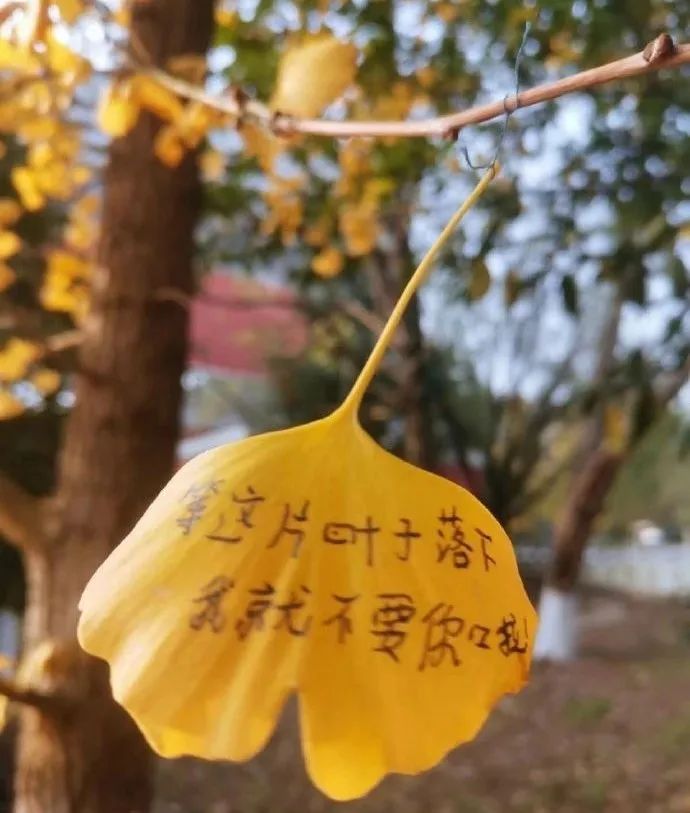 等这片叶子落下
我就不要你啦